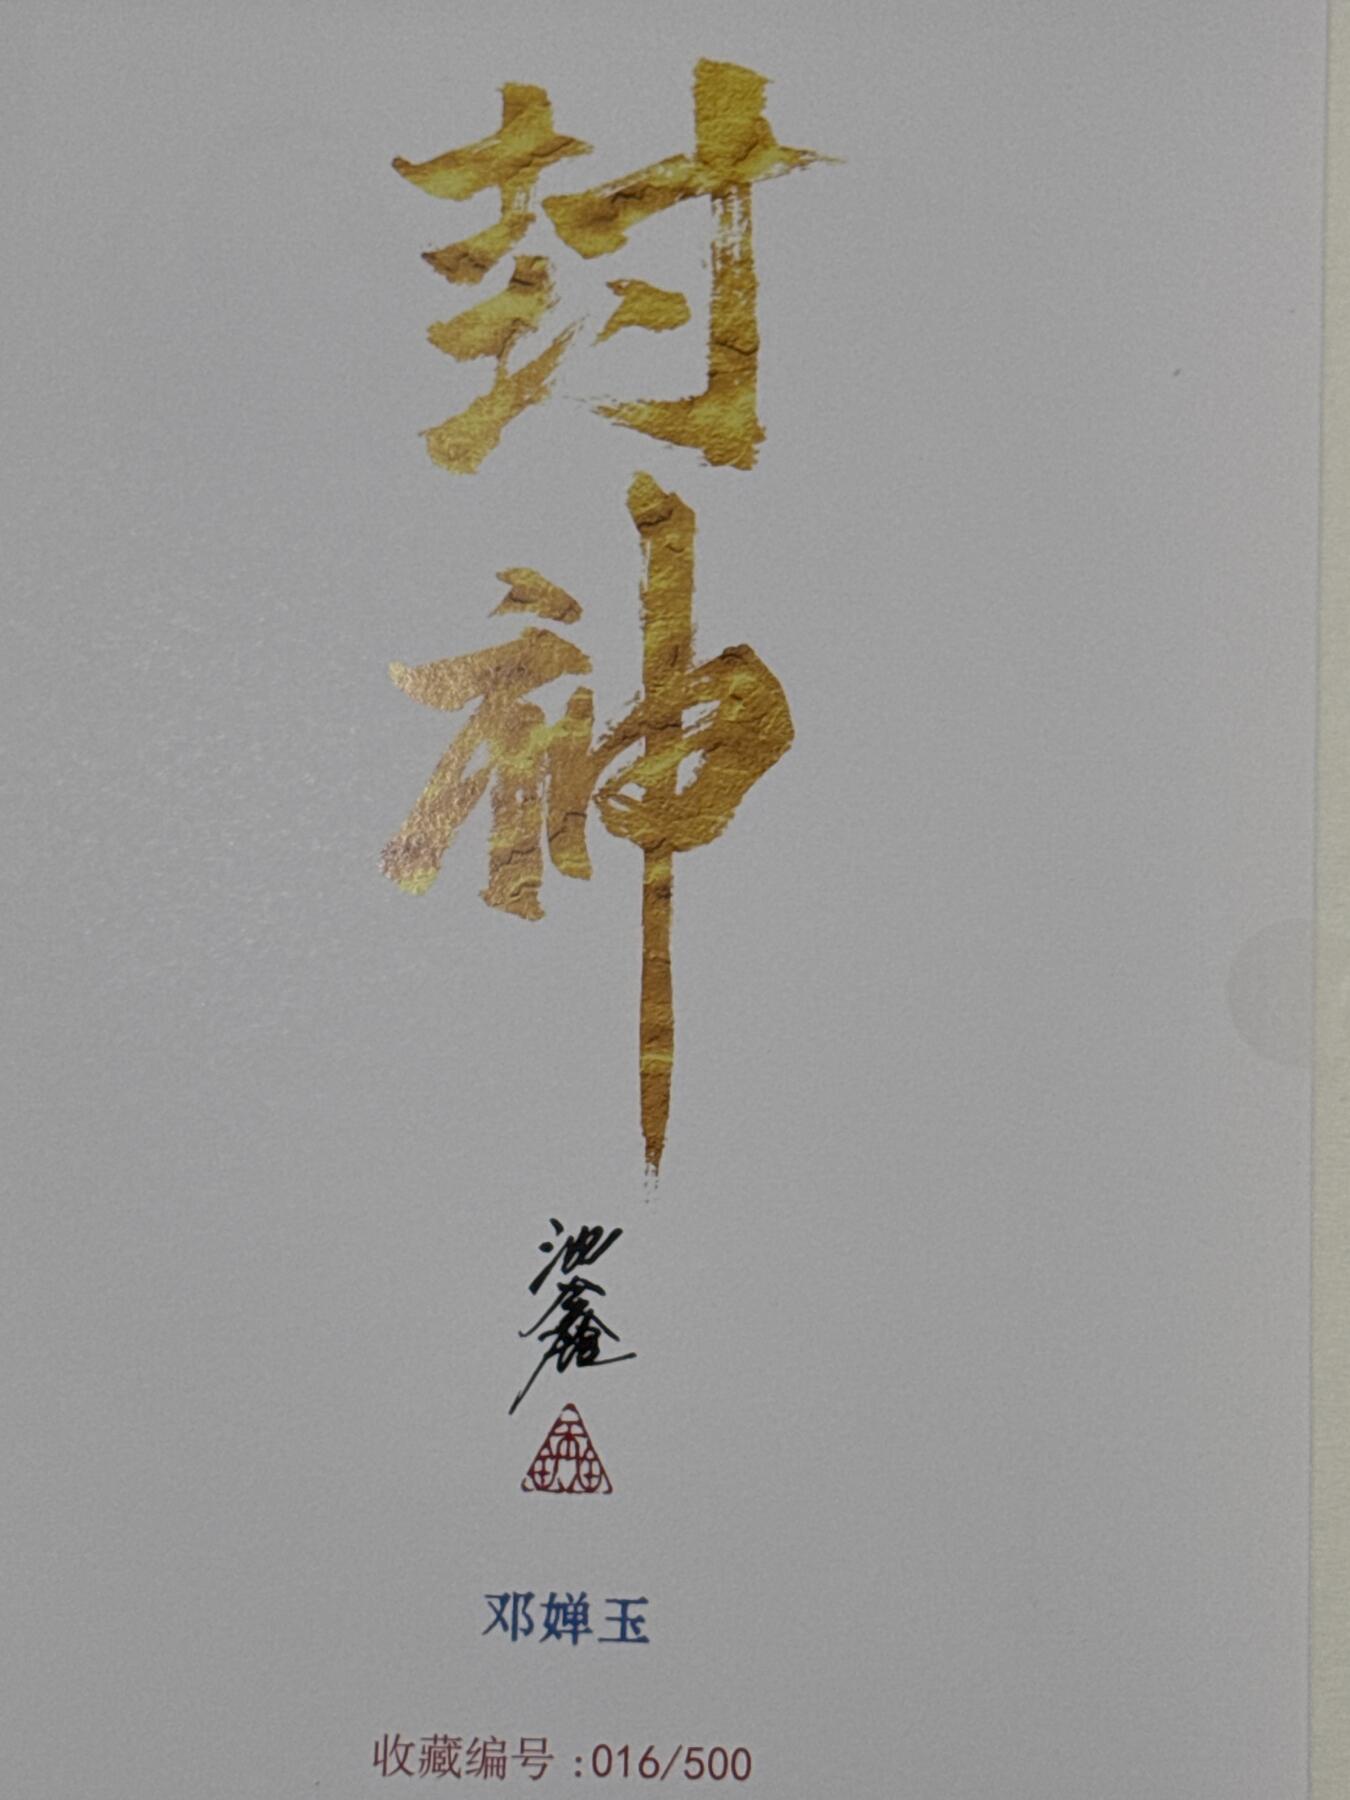 封神
邓婵玉
收藏编号:016/500